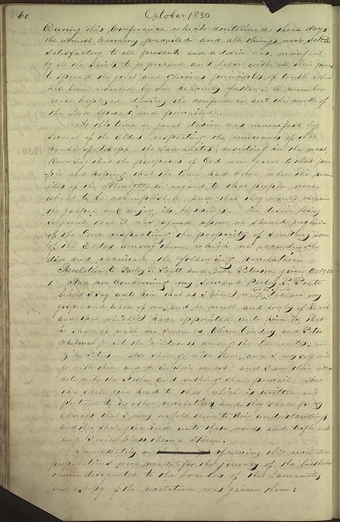 60 October 1830
During this Conference which continued three days
the utmost harmony prevailed and all things were settled
satisfactory to all present and a desire was manifest
by all the Saints to go forward and labor with all their powers
to spread the great and glorious principles of truth which
had been revealed by our heavenly father. A number
were baptized during the conference and the work of
the Lord spread and prevailed.
At this time a great desire was manifest by
several of the Elders respecting the remnants of the
house of Joseph the Lamanites residing in the west
knowing that the purposes of God were great to that peo
ple and hoping that the time had come when the prom
ises of the Almighty in regard to that people were
about to be accomplished, and that they would receive
the gospel and enjoy its blessings. The desire being
so great that it was agreed upon we should enquire
of the Lord respecting the propriety of sending some
of the Elders among them, which we accordingly
did and received the following revelation
Revelation to Parley P. Pratt and Ziba Peterson given October 1830
1 And now concerning my servant Parley P. Pratt
behold I say unto him that as I live I will that he
and learn of me, and be meek and lowly of heart
and that which I have appointed unto him is, that
he shall go with my servants Oliver Cowdery and Peter
Whitmer jr into the wilderness among the Lamanites; and
Ziba Peterson also shall go with them, and I myself will
go with them and be in their midst: and I am their
advocate with the Father and nothing shall prevail. And
they shall give heed to that which is written and
pretend to no other revelation, and they shall pray
always that I may unfold them to their understanding
and they shall give heed unto these words and trifle not
and I will bless them: Amen.
Immediately on receiving this revelation
preparations were made for the journey of the brethren
therein designated to the borders of the Lamanites
and a copy of the revelation was given them: